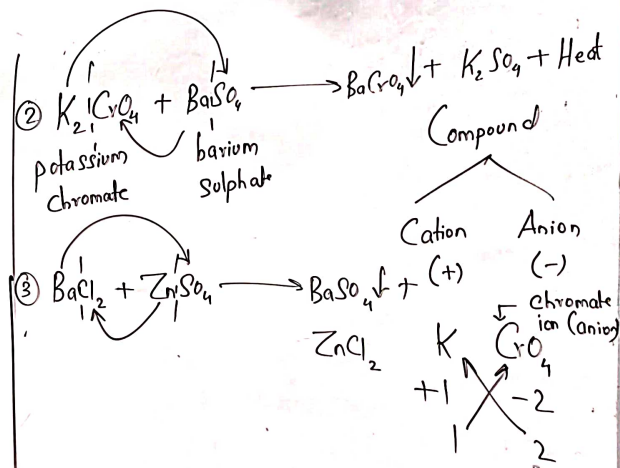 ② K₂CrO₄ + BaSO₄ → BaCrO₄↓ + K₂SO₄ + Heat
potassium chromate
barium sulphate
Compound
Cation (+)
Anion (-)
③ BaCl₂ + ZnSO₄ → BaSO₄↓ +
ZnCl₂
chromate ion (anion)
K CrO₄
+1 -2
1 2